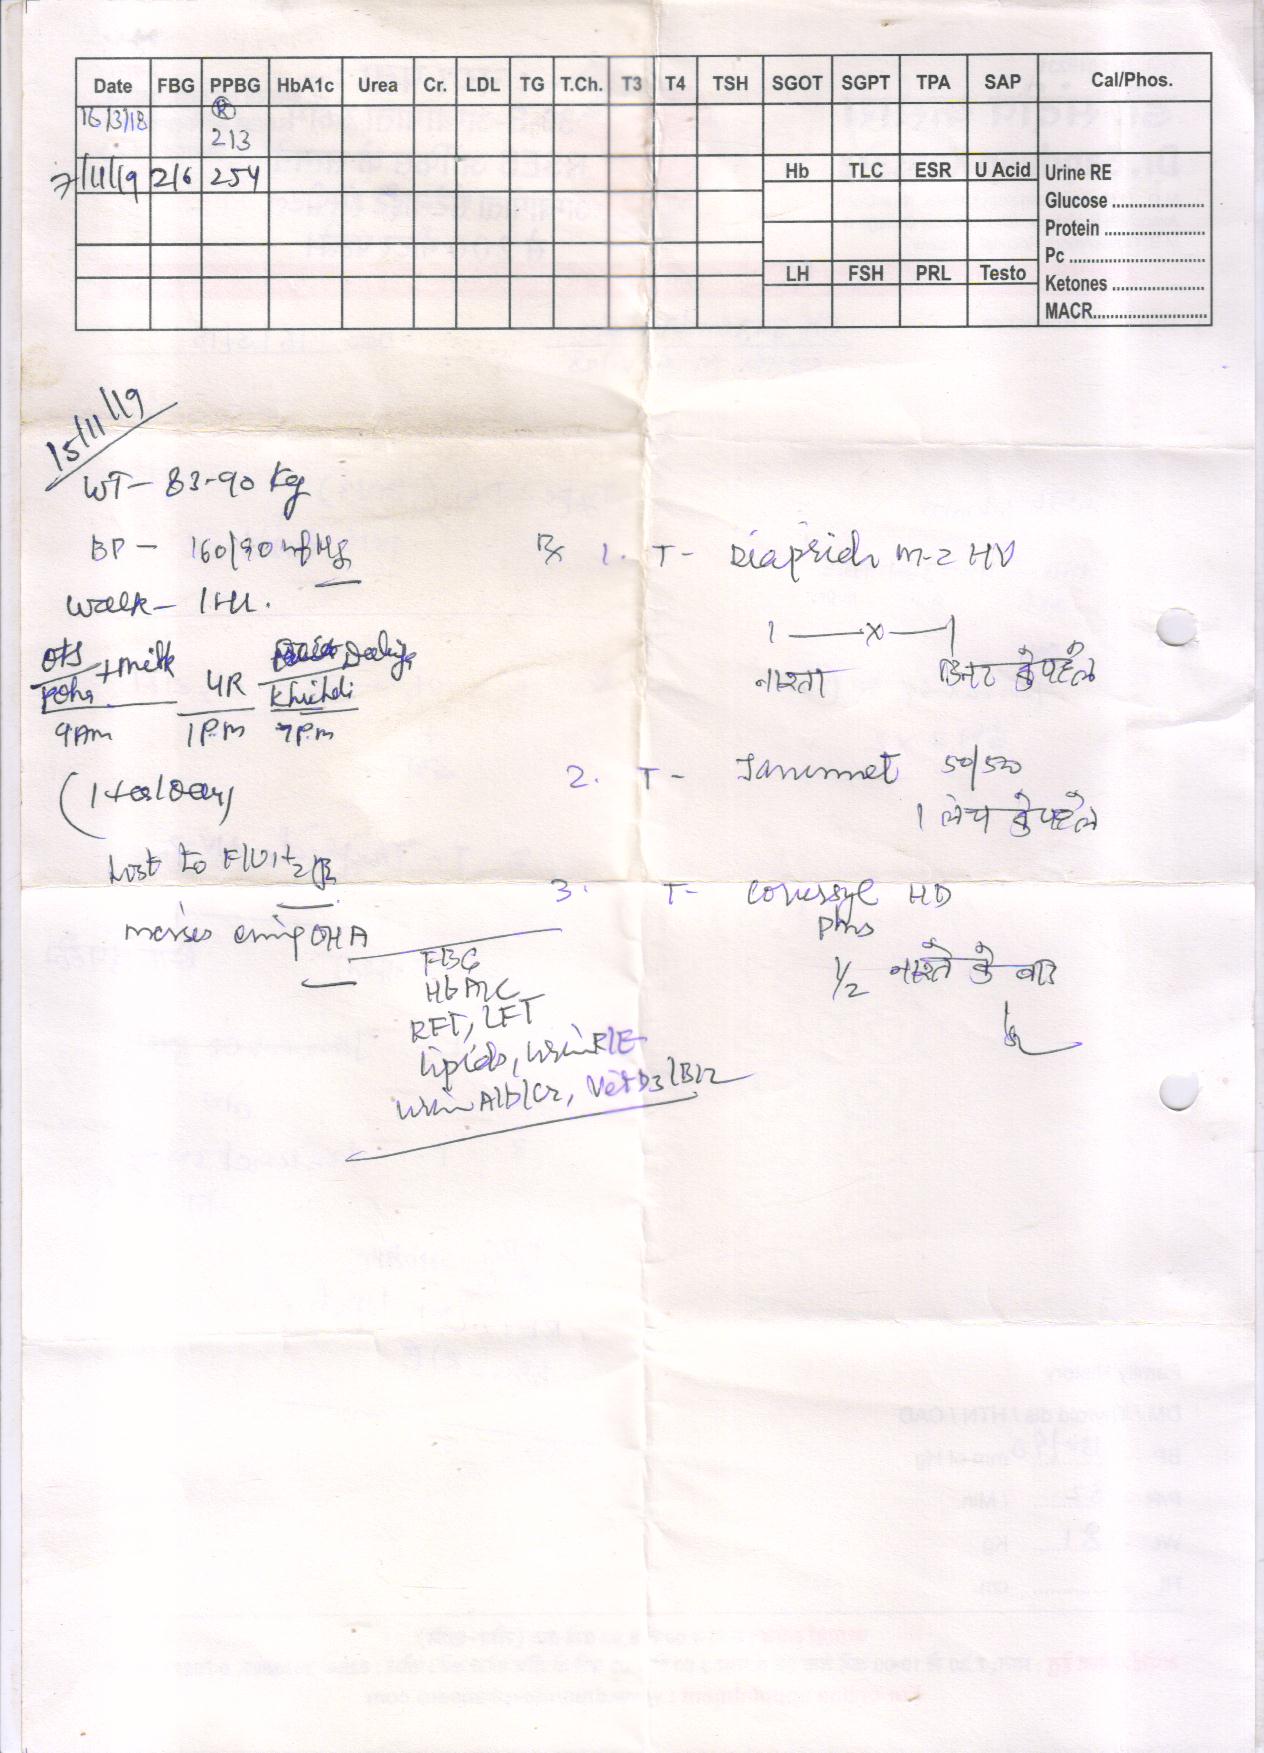 Date FBG PPBG HbA1c Urea Cr. LDL TG T.Ch. T3 T4 TSH SGOT SGPT TPA SAP Cal/Phos.
16/3/18 R 213
7/11/19 216 254
Hb TLC ESR U Acid
Urine RE
Glucose ....................
Protein ......................
Pc .............................
LH FSH PRL Testo
Ketones ....................
MACR.........................
15/11/19
WT- 83-90 Kg
BP - 160/90 mmHg
Walk- 1Hr.
+ milk
Poha 4R Khichdi
9AM 1PM 7PM
Lost to F/U
misses OHA
FBG
HbA1C
RFT, LFT
lipids, urine R/E
urine Alb/Cr, Vit D3/B12
Rx 1. T- M-2 HV
1 — x — 1
नाश्ता डिनर के पहले
2. T- Janumet 50/500
1 लंच के पहले
3. T- Coversyl HD
Plus
1/2 नाश्ते के बाद